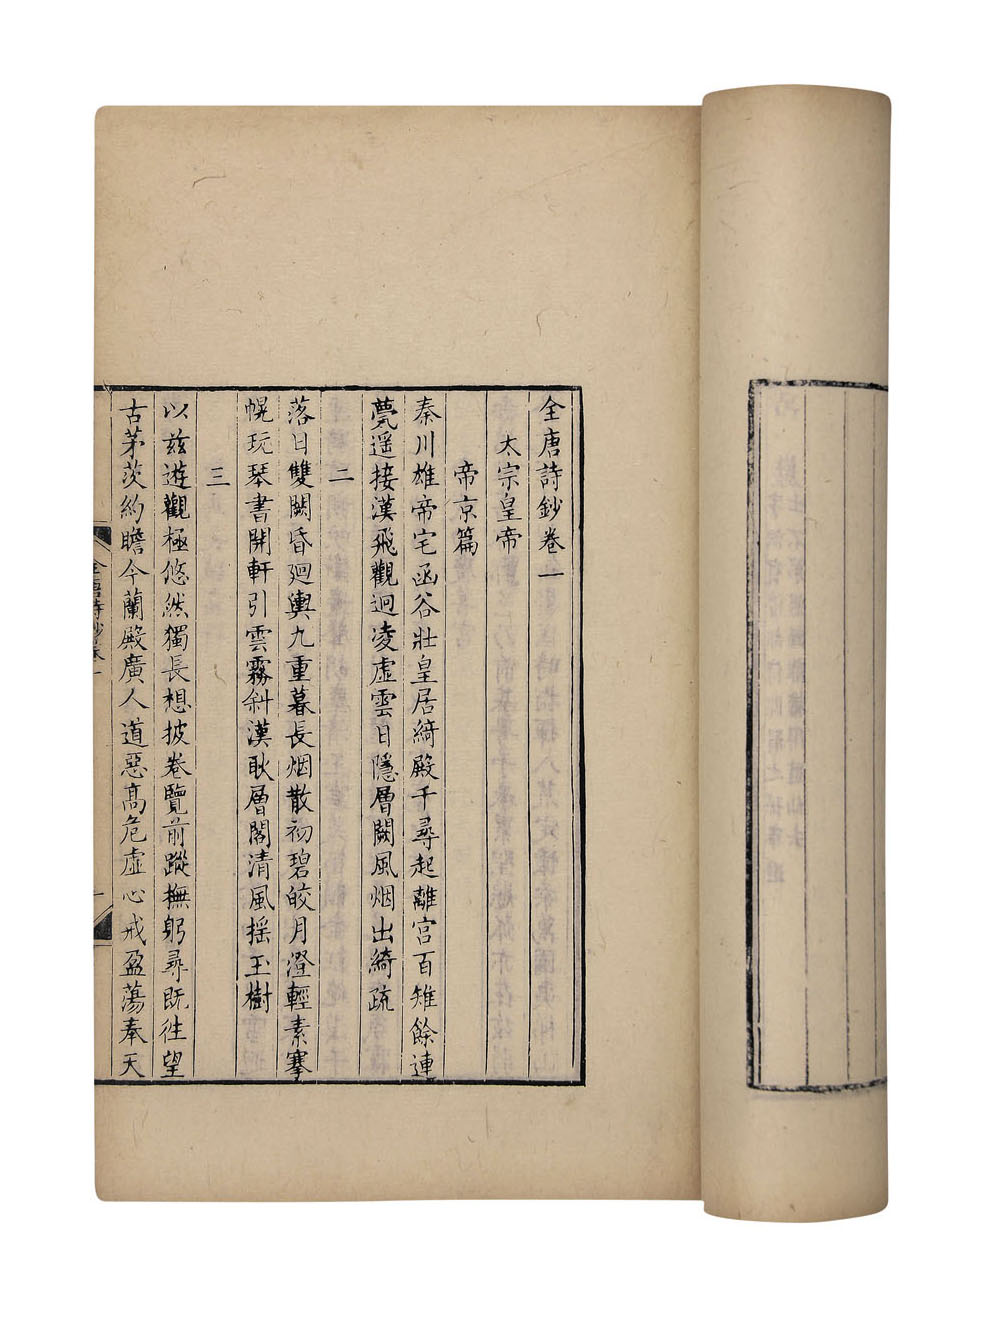 全唐詩鈔卷一
太宗皇帝
帝京篇
秦川雄帝宅函谷壯皇居綺殿千尋起離宮百雉餘連
甍遥接漢飛觀迥凌虛雲日隱層闕風烟出綺疏
二
落日雙闕昏迴輿九重暮長烟散初碧皎月澄輕素搴
幌玩琴書開軒引雲霧斜漢耿層閣清風摇玉樹
三
以兹遊觀極悠然獨長想披卷覽前蹤撫躬尋既徃望
古茅茨約瞻今蘭殿廣人道惡髙危虛心戒盈蕩奉天
全唐詩鈔卷一
一